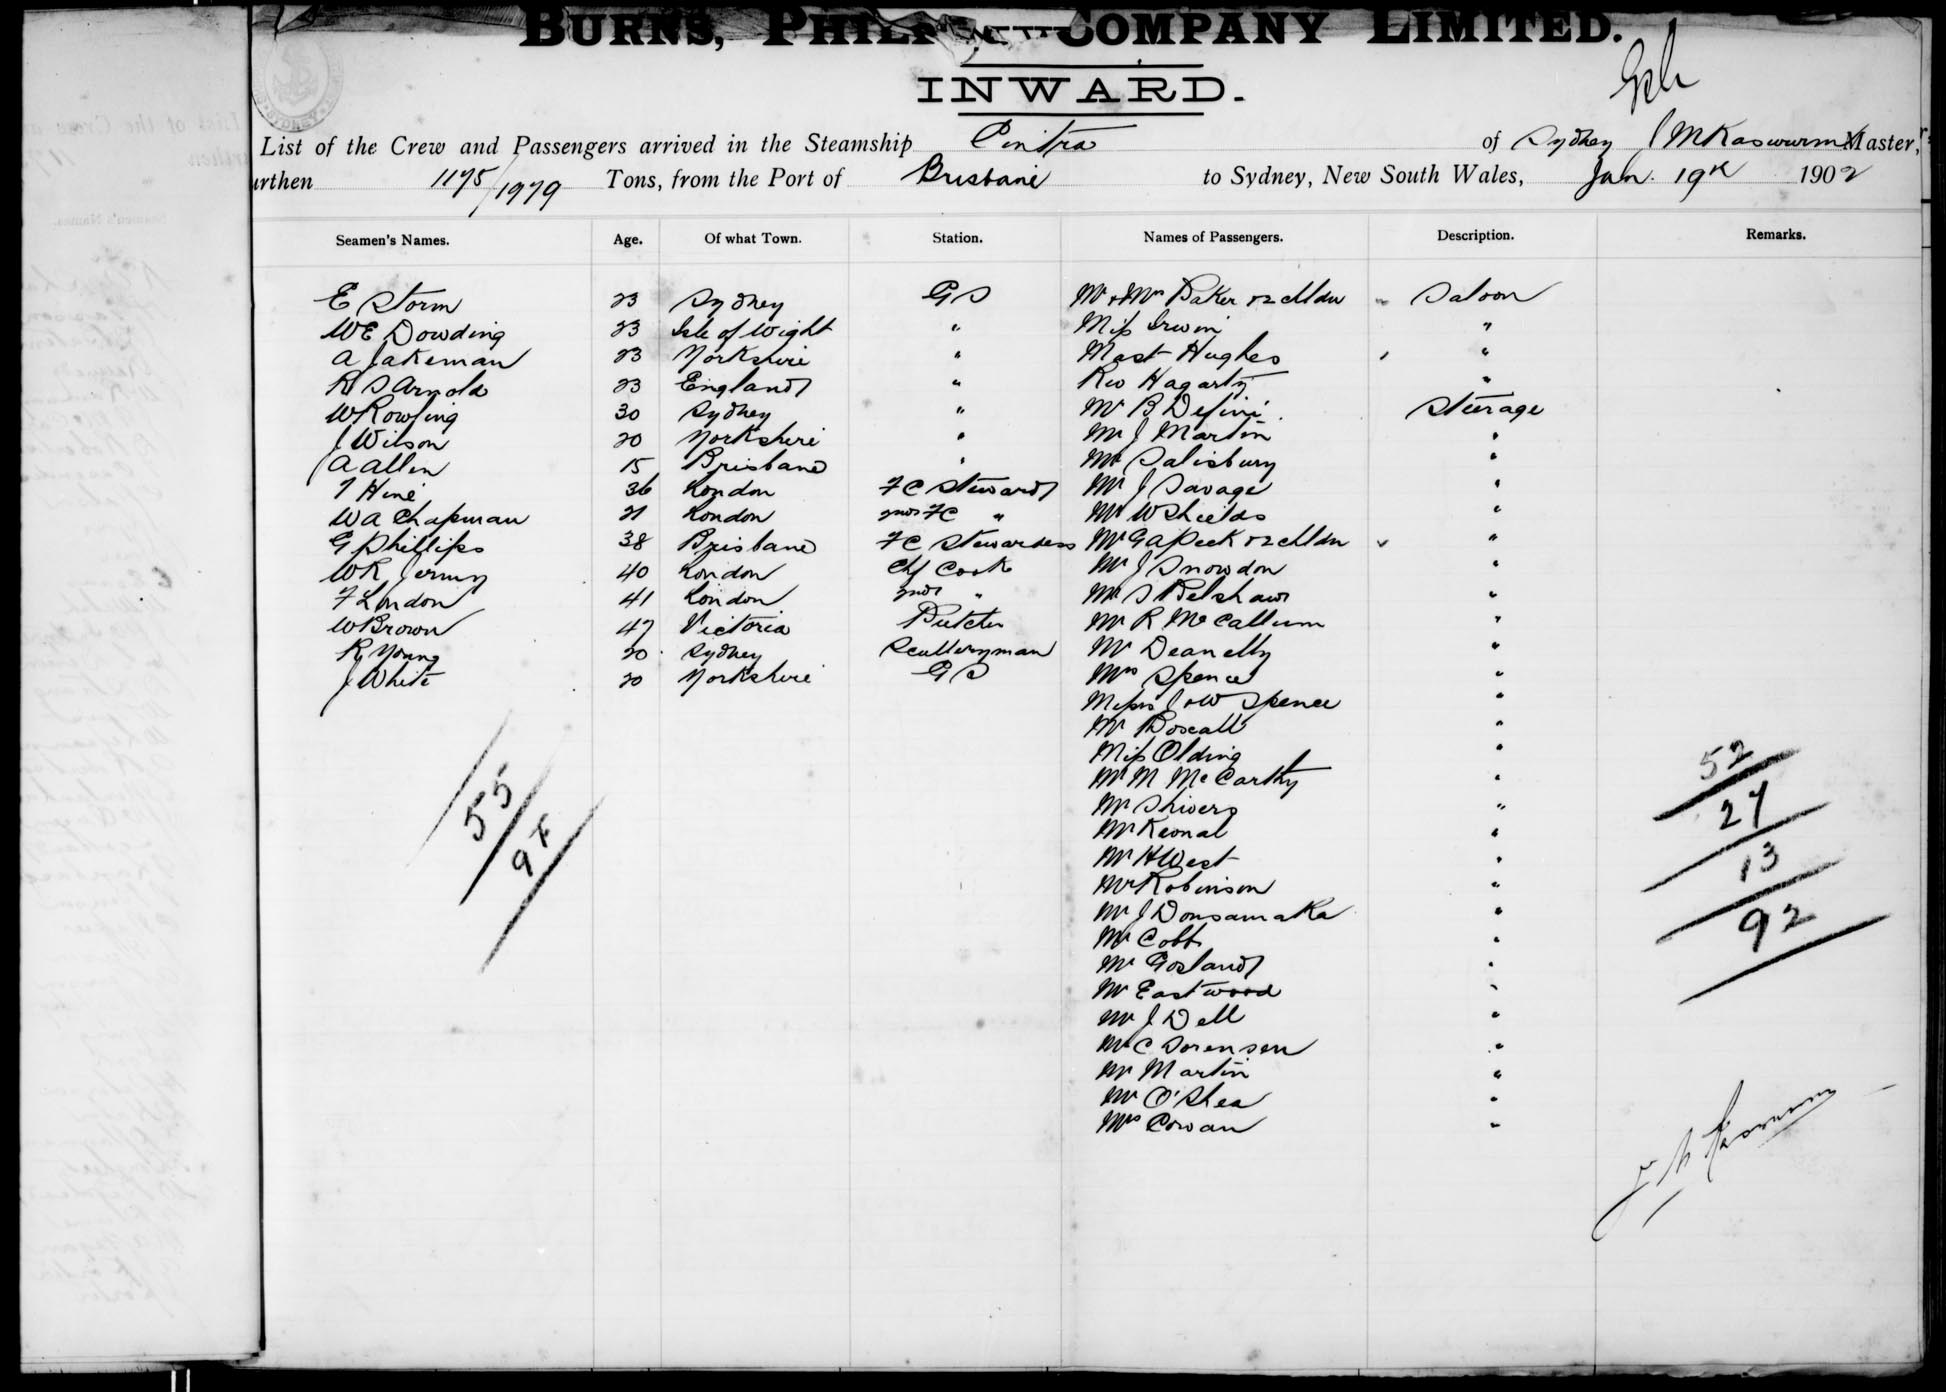 BURNS, PHILP COMPANY LIMITED.
INWARD.
List of the Crew and Passengers arrived in the Steamship Cintra of Sydney J M Kaswurm Master,
urthen 1175/1979 Tons, from the Port of Brisbane to Sydney, New South Wales, Jan. 19th 1902
Seamen's Names. Age. Of what Town. Station. Names of Passengers. Description. Remarks.
E Storm 23 Sydney G S Mr & Mrs Baker & 2 chldn " Saloon
W E Dowding 23 Isle of Wight " Miss Irwin "
A Jakeman 23 Yorkshire " Mast Hughes "
R S Arnold 23 England " Rev Hagarty "
W Rowling 30 Sydney " Mr B Define Steerage
J Wilson 20 Yorkshire " Mr J Martin "
A Allen 15 Brisbane " Mr Salisbury "
T Hine 36 London FC Steward Mr J Savage "
W A Chapman 21 London 2nd FC " Mr W Shields "
G Phillips 38 Brisbane FC Stewardess Mr G A Peek & 2 chldn "
W R Jermy 40 London Chf Cook Mr J Snowdon "
F London 41 London 2nd " Mr S Belshaw "
W Brown 47 Victoria Butcher Mr R McCallum "
R Young 20 Sydney Sculleryman Mr Deanelly "
J White 20 Yorkshire G S Mrs Spence "
Misses J & W Spence "
Mr Boxall "
Miss Olding "
Mr M McCarthy "
Mr Shivers "
Mr "
Mr H West "
Mr Robinson "
Mr J "
Mr Cobb "
Mr Gosland "
Mr Eastwood "
Mr J Dell "
Mr C Sorensen "
Mr Martin "
Mr O'Shea "
Mrs Cowan "
55
97
52
27
13
92